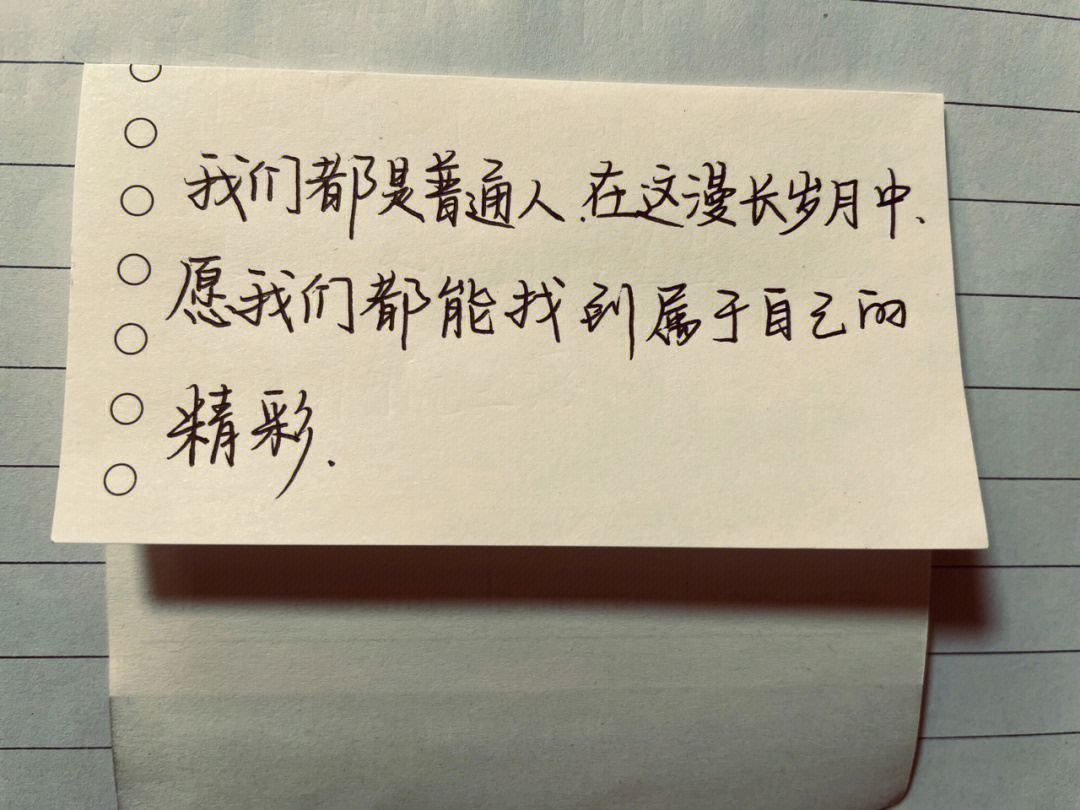 我们都是普通人.在这漫长岁月中、
愿我们都能找到属于自己的
精彩.